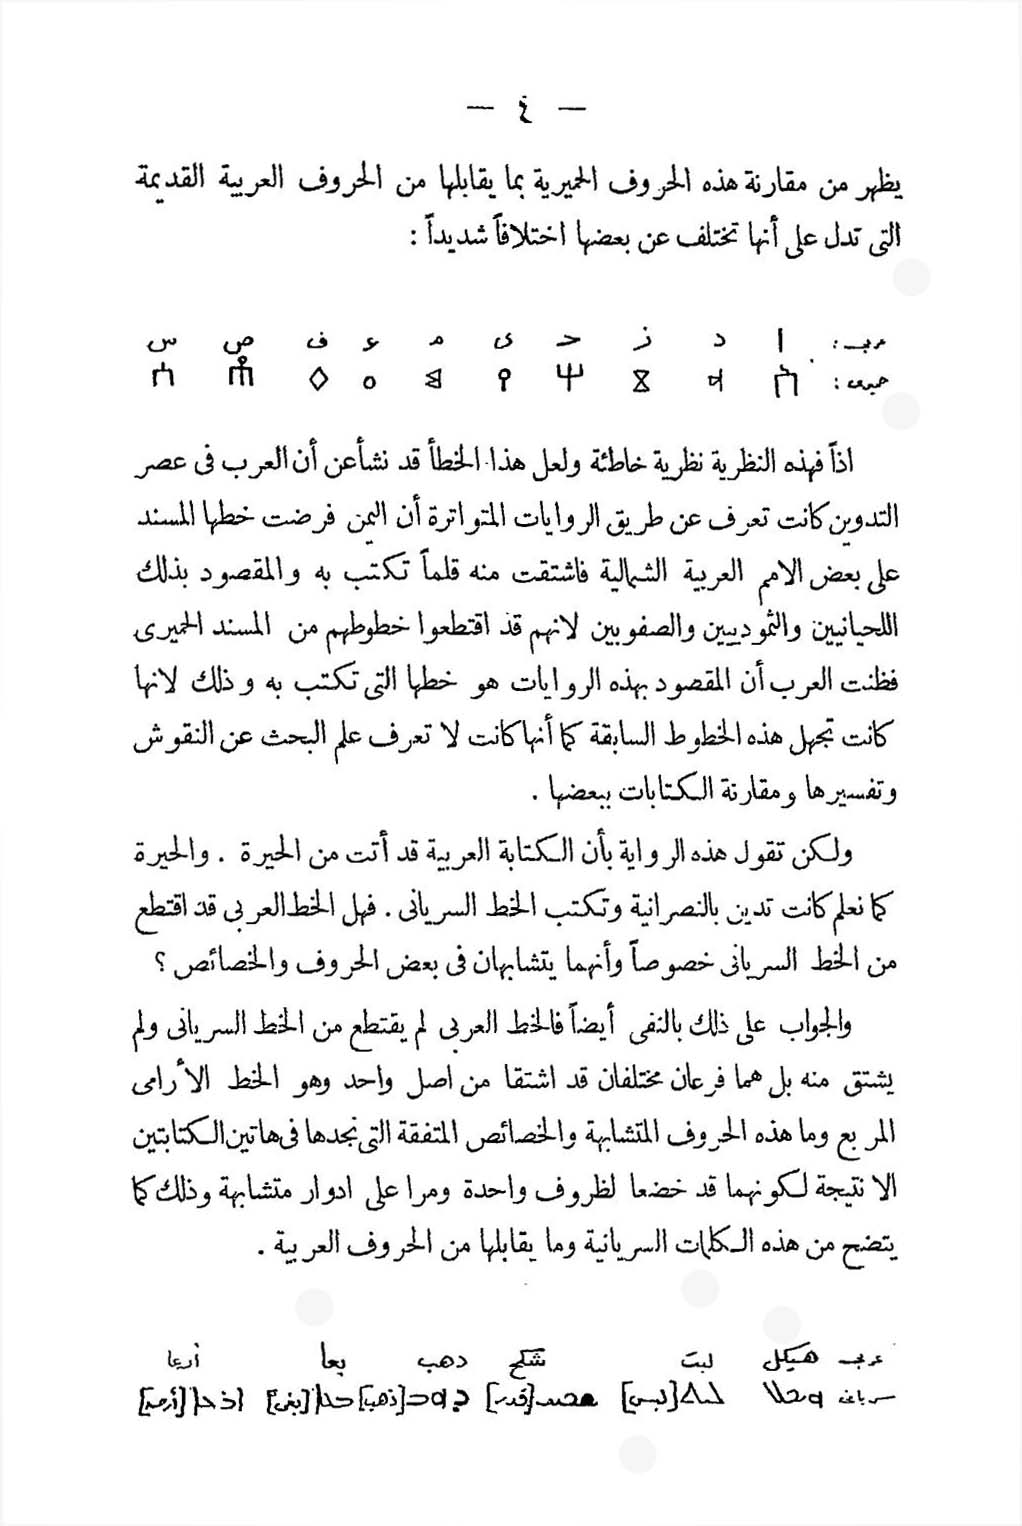 — ٤ —
يظهر من مقارنة هذه الحروف الحميرية بما يقابلها من الحروف العربية القديمة
التى تدل على أنها تختلف عن بعضها اختلافاً شديداً :
ا د ز حـ ى م ع ف ص س
اذاً فهذه النظرية نظرية خاطئة ولعل هذا الخطأ قد نشأ عن أن العرب فى عصر
التدوين كانت تعرف عن طريق الروايات المتواترة أن اليمن فرضت خطها المسند
على بعض الامم العربية الشمالية فاشتقت منه قلماً تكتب به والمقصود بذلك
اللحيانيين والثموديين والصفويين لانهم قد اقتطعوا خطوطهم من المسند الحميرى
فظنت العرب أن المقصود بهذه الروايات هو خطها التى تكتب به وذلك لانها
كانت تجهل هذه الخطوط السابقة كما أنها كانت لا تعرف علم البحث عن النقوش
وتفسيرها ومقارنة الكتابات ببعضها .
ولكن تقول هذه الرواية بأن الكتابة العربية قد أتت من الحيرة . والحيرة
كما نعلم كانت تدين بالنصرانية وتكتب الخط السريانى . فهل الخط العربى قد اقتطع
من الخط السريانى خصوصاً وأنهما يتشابهان فى بعض الحروف والخصائص ؟
والجواب على ذلك بالنفى أيضاً فالخط العربى لم يقتطع من الخط السريانى ولم
يشتق منه بل هما فرعان مختلفان قد اشتقا من اصل واحد وهو الخط الأرامى
المربع وما هذه الحروف المتشابهة والخصائص المتفقة التى نجدها فى هاتين الكتابتين
الا نتيجة لكونهما قد خضعا لظروف واحدة ومرا على ادوار متشابهة وذلك كما
يتضح من هذه الكلمات السريانية وما يقابلها من الحروف العربية .
هيكل دهب